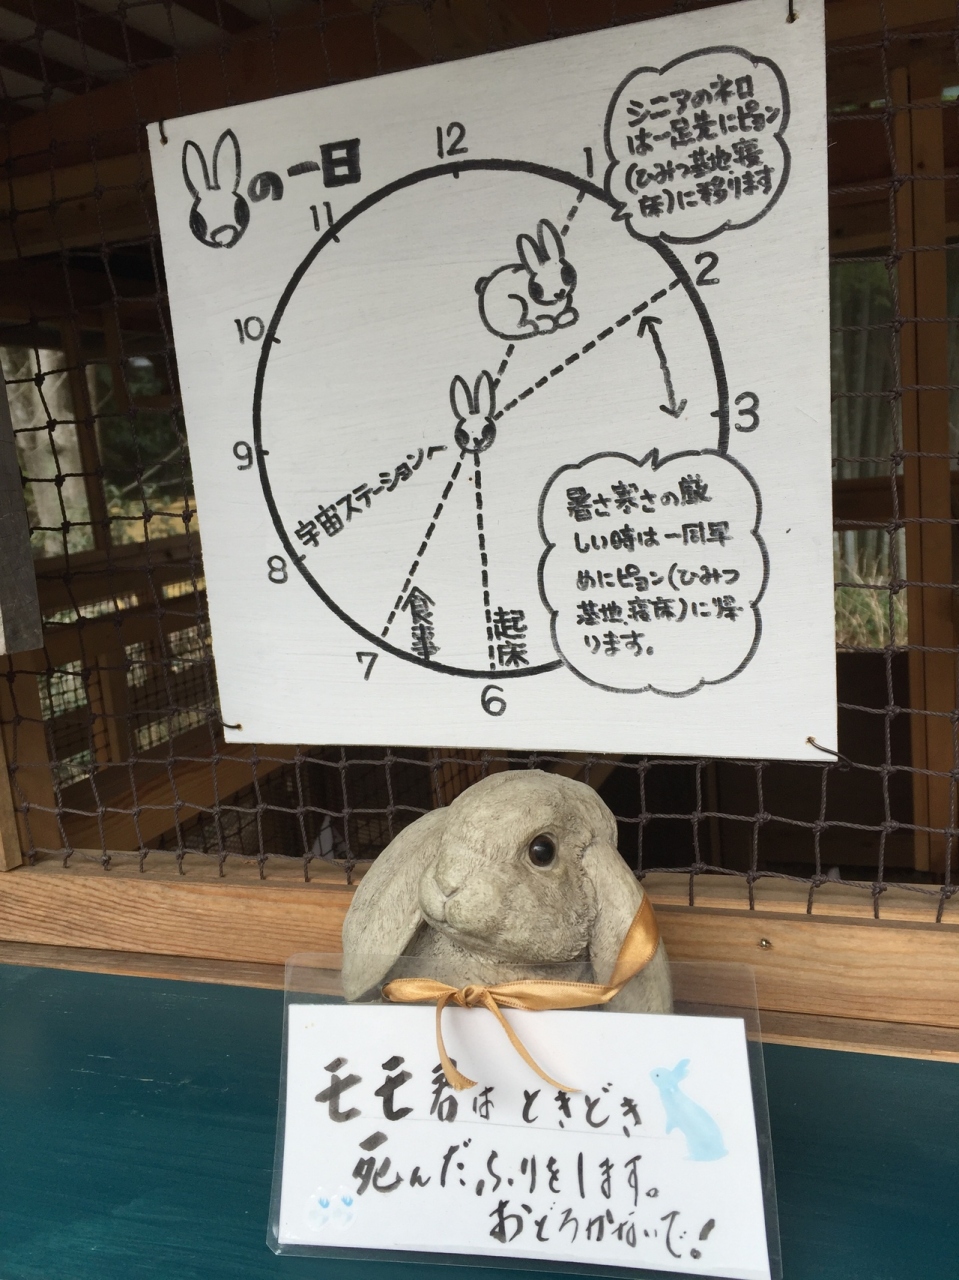 の一日
12
1
2
3
6
7
8
9
10
11
シニアのネロ
は一足先にピョン
(ひみつ基地、寝
床)に移ります
宇宙ステーションへ
食事
起床
暑さ寒さの厳
しい時は一同早
めにピョン(ひみつ
基地、寝床)に帰
ります。
モモ君は ときどき
死んだふりをします。
おどろかないで!